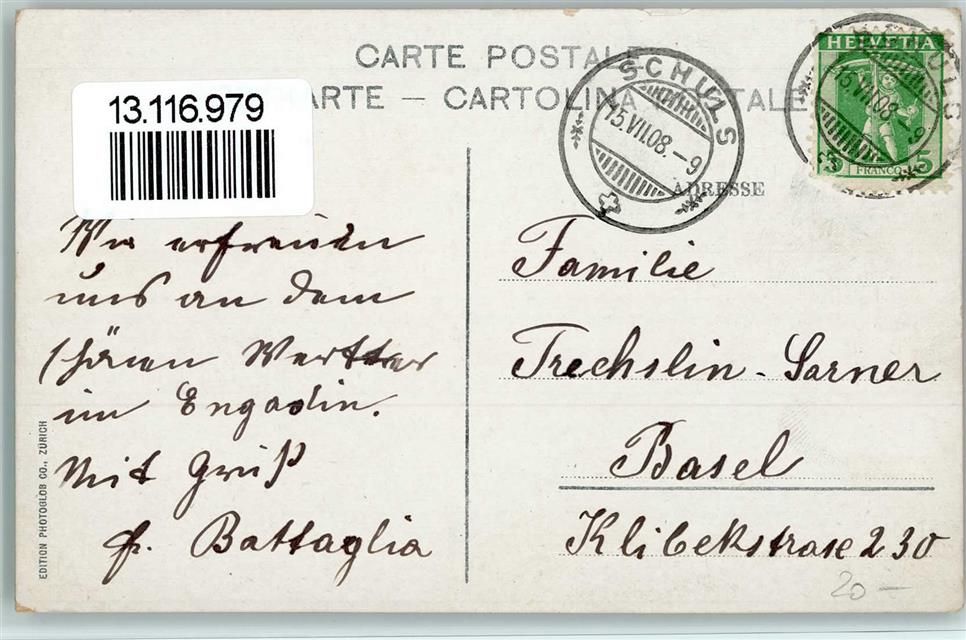 CARTE POSTALE
ARTE — CARTOLINA POSTALE
13.116.979
SCHULS
15.VII.08.–9
HELVETIA
5 FRANCO 5
SCHULS
15.VII.08.–9
ADRESSE
Wir erfreuten
uns an dem
schönen Wetter
im Engadin.
Mit Gruß
Battaglia
Familie
Trechslin - Sarner
Basel
Klibekstrase 230
20.–
EDITION PHOTOGLOB CO., ZÜRICH